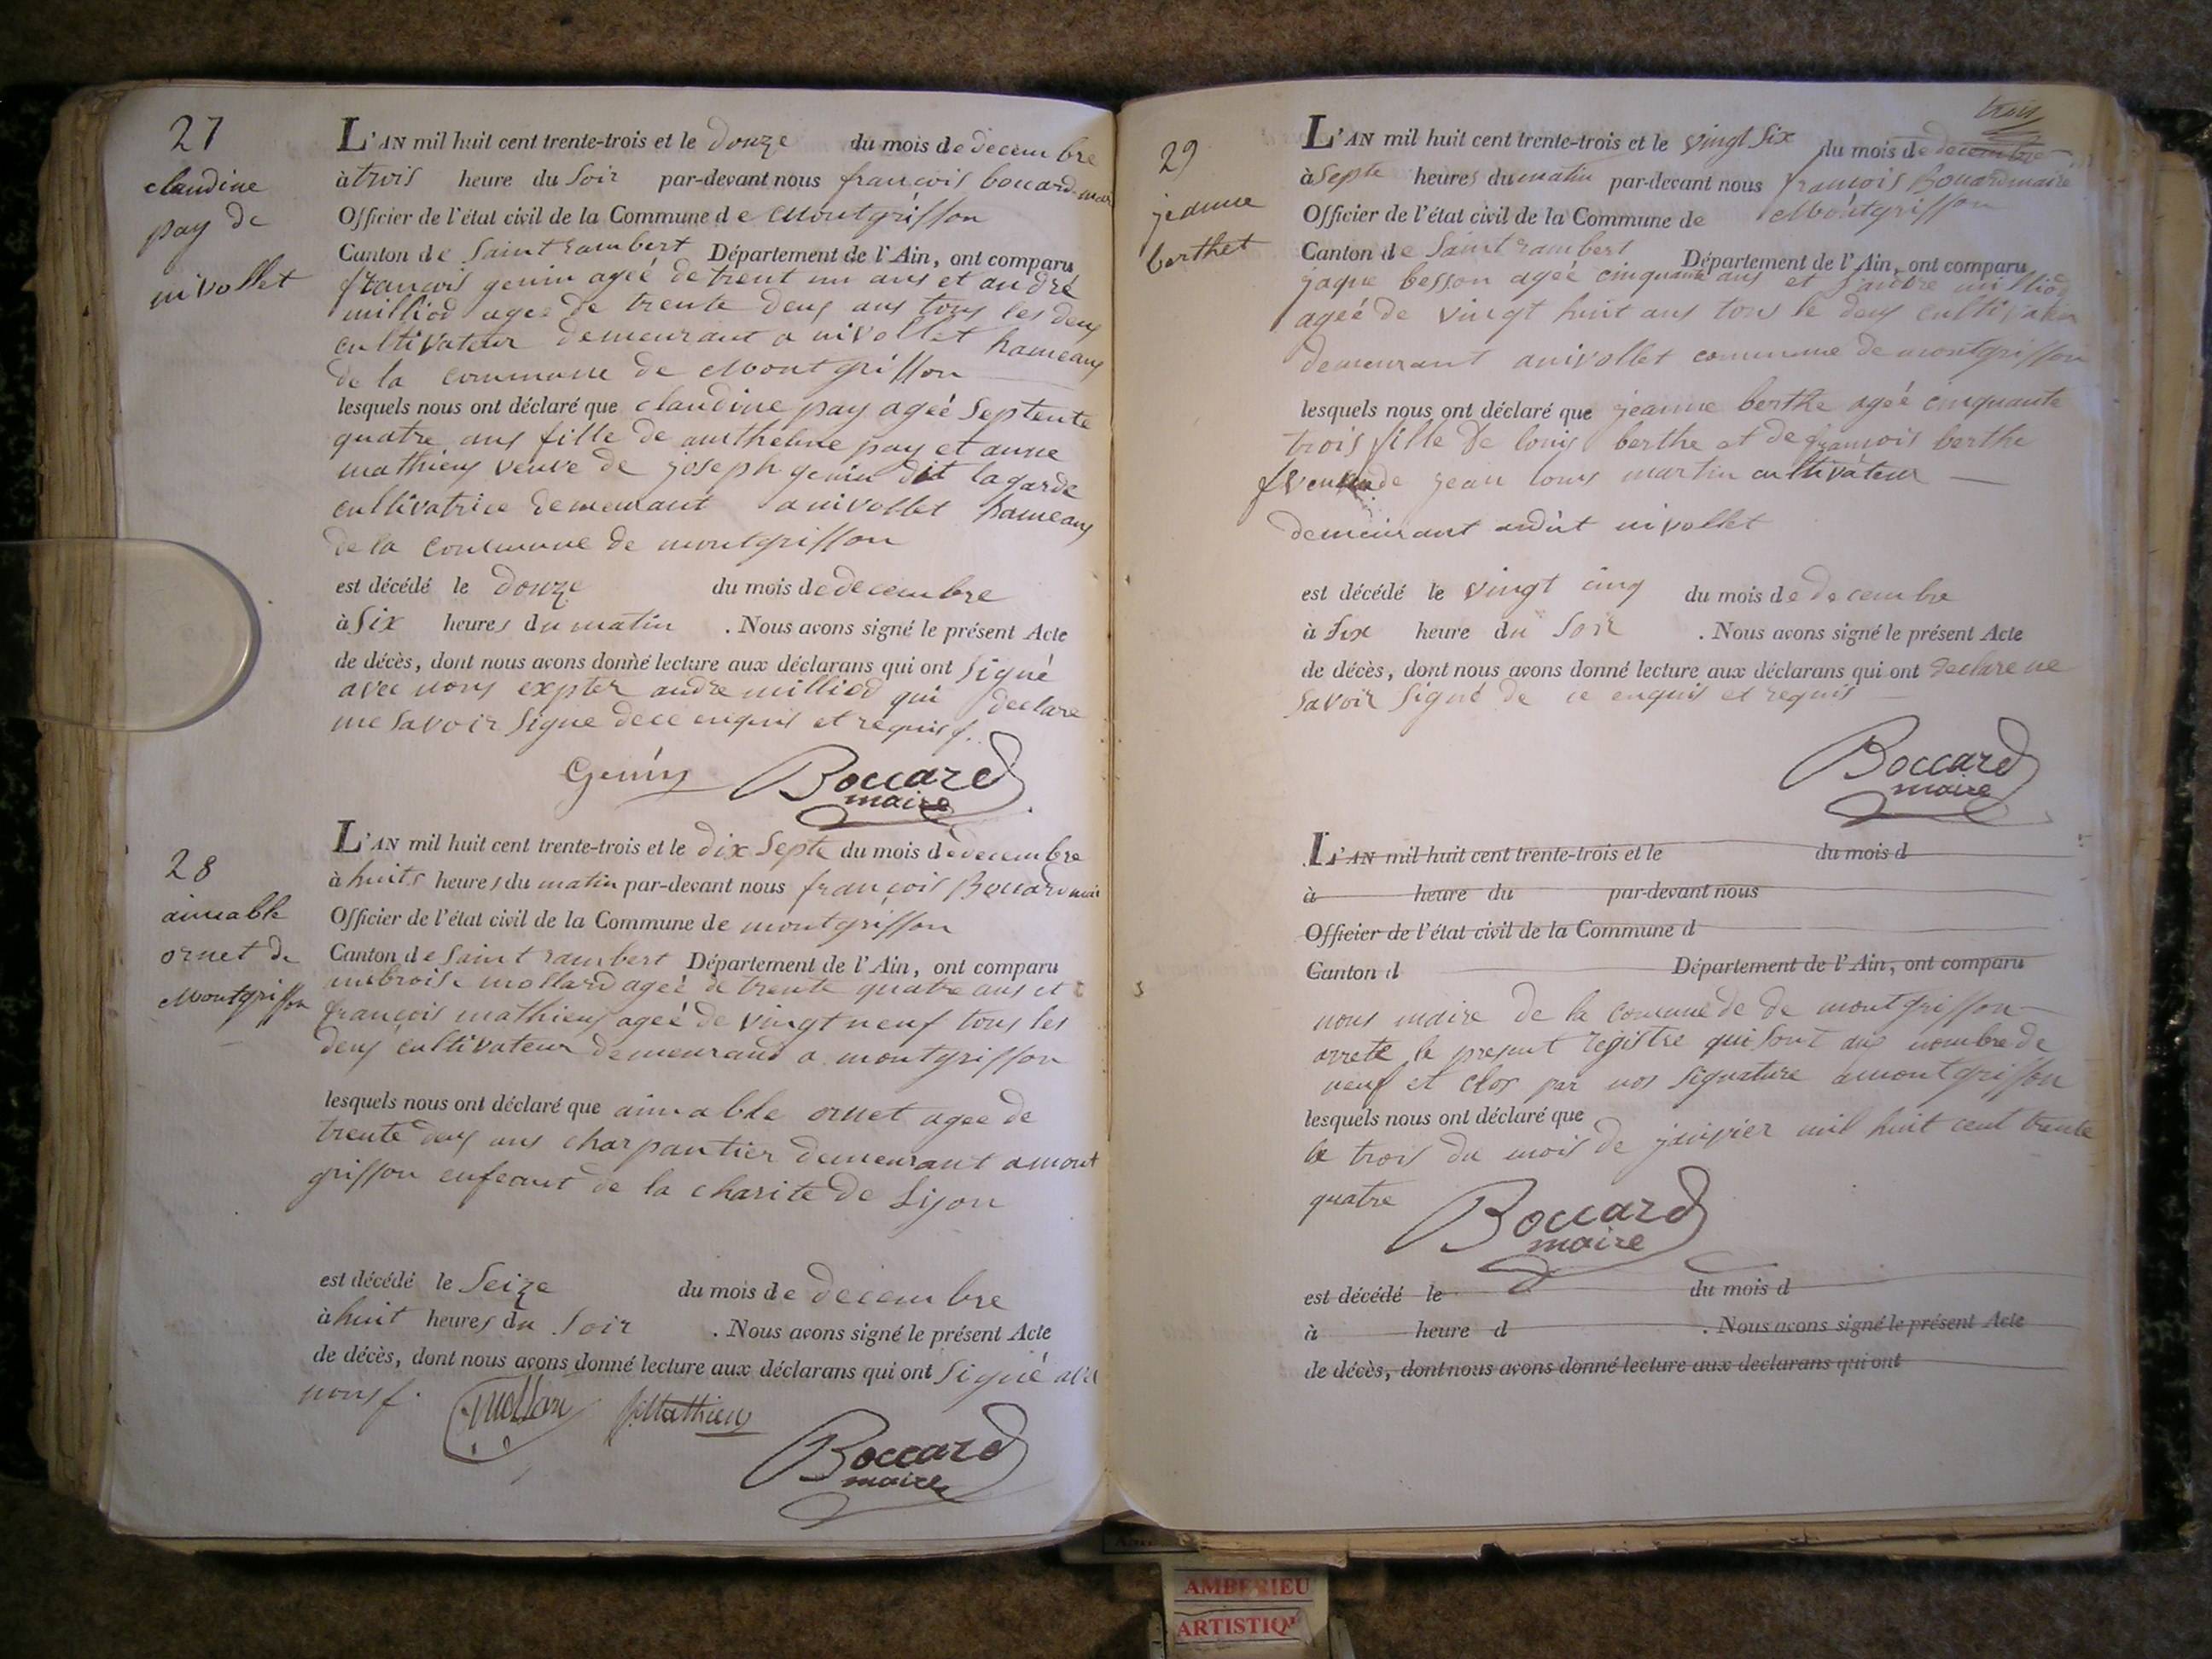 27
claudine
pay de
nivollet
L'AN mil huit cent trente-trois et le douze du mois de decembre
à trois heure du soir par-devant nous francois boccard maire
Officier de l'état civil de la Commune de Montgriffon
Canton de Saint rambert Département de l'Ain, ont comparu
francois genin ageé de trent un ans et andré
milliod agee de trente deux ans tous les deux
cultivateur demeurant a nivollet hameaux
de la commune de Montgriffon
lesquels nous ont déclaré que claudine pay ageé Septente
quatre ans fille de anthelme pay et anne
mathieux veuve de joseph genin dit lagarde
cultivatrice demeurant a nivollet hameaux
de la commune de montgriffon
est décédé le douze du mois de decembre
à Six heures du matin . Nous avons signé le présent Acte
de décès, dont nous avons donné lecture aux déclarans qui ont Signé
avec nous expter andre milliod qui declare
ne savoir signe de ce enquis et requis
Genin Boccard
maire
28
aimable
ornet de
Montgriffon
L'AN mil huit cent trente-trois et le dix Septe du mois de decembre
à huits heures du matin par-devant nous francois Boccard maire
Officier de l'état civil de la Commune de montgriffon
Canton de Saint rambert Département de l'Ain, ont comparu
ambroise mollard ageé de trente quatre ans et
francois mathieux ageé de vingt neuf tous les
deux cultivateur demeurand a montgriffon
lesquels nous ont déclaré que aimable ornet agee de
trente deux ans charpantier demeurant a mont
griffon enfeant de la charite de Lijon
est décédé le Seize du mois de decembre
à huit heures du soir . Nous avons signé le présent Acte
de décès, dont nous avons donné lecture aux déclarans qui ont Signé
nous
Mollard Mathieu
Boccard
maire
29
jeanne
berthet
trois
L'AN mil huit cent trente-trois et le vingt Six du mois de decembre
à Septe heures du matin par-devant nous francois Boccard maire
Officier de l'état civil de la Commune de Montgriffon
Canton de Saint rambert Département de l'Ain, ont comparu
jaque besson ageé cinquante ans et andre milliod
ageé de vingt huit ans tous le deux cultivateur
demeurant a nivollet commune de montgriffon
lesquels nous ont déclaré que jeanne berthe ageé cinquante
trois fille de louis berthe et de francois berthe
de jean louis martin cultivateur
demeurant audit nivollet
est décédé le vingt cinq du mois de decembre
à Six heure du Soir . Nous avons signé le présent Acte
de décès, dont nous avons donné lecture aux déclarans qui ont declare ne
savoir signé de ce enquis et requis
Boccard
maire
L'AN mil huit cent trente-trois et le du mois d
à heure du par-devant nous
Officier de l'état civil de la Commune d
Canton d Département de l'Ain, ont comparu
nous maire de la comune de de montgriffon
arrete le present registre qui sont au nombre de
neuf et clos par nos signature a montgriffon
lesquels nous ont déclaré que
le trois du mois de janvier mil huit cent trente
quatre Boccard
maire
est décédé le du mois d
à heure d . Nous avons signé le présent Acte
de décès, dont nous avons donné lecture aux declarans qui ont
AMBERIEU
ARTISTIQU